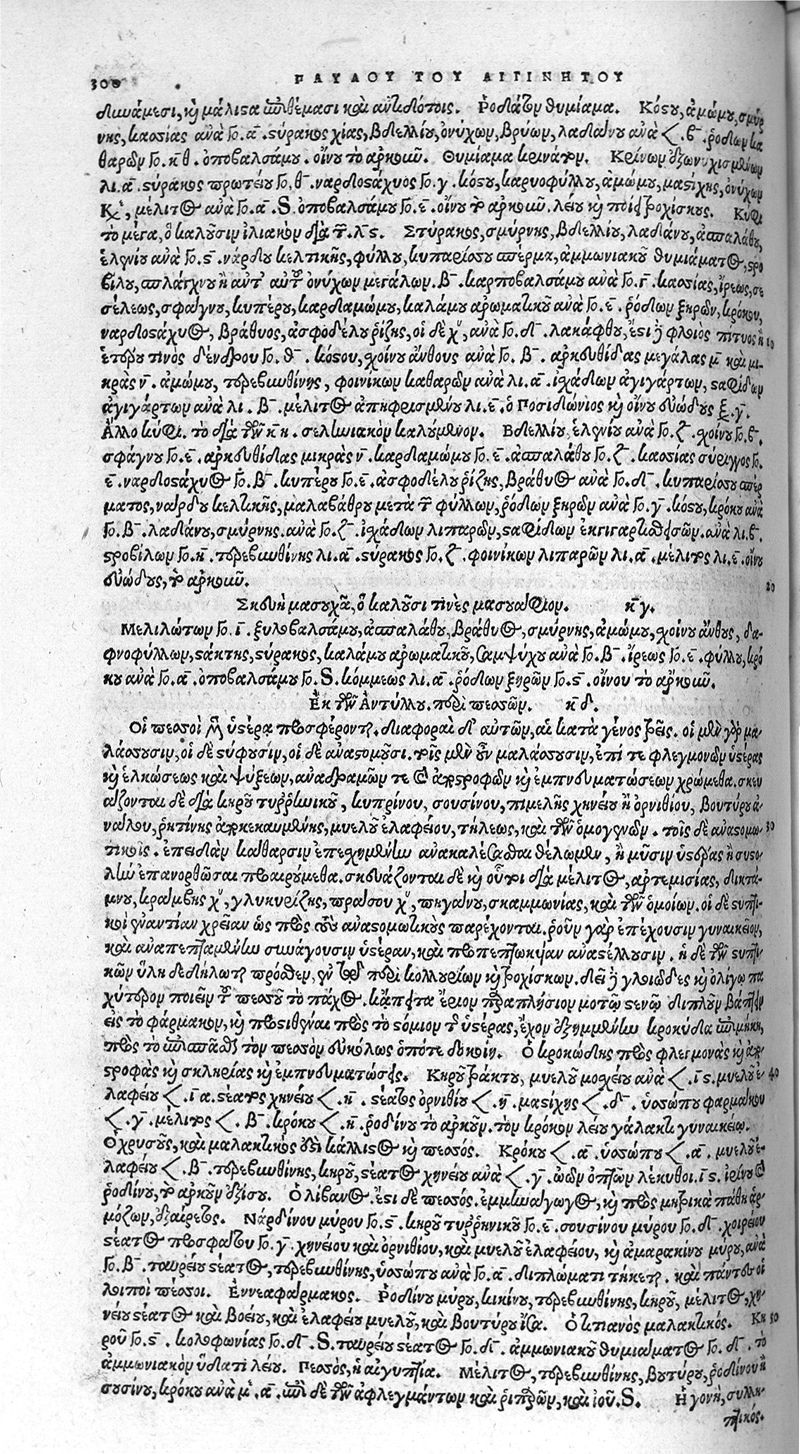 300 ΠΑΥΛΟΥ ΤΟΥ ΑΙΓΙΝΗΤΟΥ
δυνάμεσι, καὶ μάλιστα ἐπιθέμασι καὶ ἀντιδότοις. Ῥοδάτον θυμίαμα. Κόστου, ἀμώμου, σμύρ
νης, κασίας ἀνὰ γο. α. στύρακος χίας, βδελλίου, ὀνύχων, βρύων, λαδάνου ἀνὰ <. β. ῥόδων κα
θαρῶν γο. κθ. ὀποβαλσάμου. οἴνου τὸ ἀρκοῦν. Θυμίαμα κρινάτον. Κρίνων ἐξωνυχισμένων
λι. α. στύρακος πρωτείου γο. θ. ναρδοστάχυος γο. γ. κόστου, καρυοφύλλου, ἀμώμου, μαστίχης, ὀνύχων
μέλιτος ἀνὰ γο. α. S. ὀποβαλσάμου γο. ε. οἴνου τὸ ἀρκοῦν. λείου καὶ ποίει τροχίσκους. Κυφι
τὸ μέγα, ὃ καλοῦσιν ἡλιακὸν διὰ τῶν λς. Στύρακος, σμύρνης, βδελλίου, λαδάνου, ἀσπαλάθου,
ἑλενίου ἀνὰ γο. ς. νάρδου κελτικῆς, φύλλου, κυπαρίσσου σπέρμα, ἀμμωνιακοῦ θυμιάματος, στρο
βίλου, σπλάγχνου ἢ ἀντ' αὐτοῦ ὀνύχων μεγάλων. β. καρποβαλσάμου ἀνὰ γο. γ. κασίας, ἴρεως, σε
σέλεως, σφάγνου, κυπέρου, καρδαμώμου, καλάμου ἀρωματικοῦ ἀνὰ γο. ε. ῥόδων ξηρῶν, κρόκου,
ναρδοστάχυος, βράθυος, ἀσφοδέλου ῥίζης, οἱ δὲ χυ, ἀνὰ γο. δ. λακάφθου, ἔστι δὲ φλοιὸς πίτυος ἢ 10
ἑτέρου τινὸς δένδρου γο. θ. κόστου, σχοίνου ἄνθους ἀνὰ γο. β. ἀρκευθίδας μεγάλας μ καὶ μι
κρὰς ν. ἀμώμου, τερεβινθίνης, φοινίκων καθαρῶν ἀνὰ λι. α. ἰσχάδων ἀγιγάρτων, σταφίδων
ἀγιγάρτων ἀνὰ λι. β. μέλιτος ἀπηφρισμένου λι. ε. ὁ Ποσιδώνιος καὶ οἴνου εὐώδους ξ. γ.
Ἄλλο κύφι. τὸ διὰ τῶν κη. σεληνιακὸν καλούμενον. Βδελλίου, ἑλενίου ἀνὰ γο. ζ. σχοίνου γο. β.
σφάγνου γο. ε. ἀρκευθίδας μικρὰς ν. καρδαμώμου γο. ε. ἀσπαλάθου γο. ζ. κασίας σύριγγος γο.
ε. ναρδοστάχυος γο. β. κυπέρου γο. ε. ἀσφοδέλου ῥίζης, βράθυος ἀνὰ γο. δ. κυπαρίσσου σπέρ
ματος, νάρδου κελτικῆς, μαλαβάθρου μετὰ τῶν φύλλων, ῥόδων ξηρῶν ἀνὰ γο. γ. κόστου, κρόκου ἀνὰ
γο. β. λαδάνου, σμύρνης. ἀνὰ γο. ζ. ἰσχάδων λιπαρῶν, σταφίδων ἐκγιγαρτισθεισῶν. ἀνὰ λι. β.
στροβίλων γο. η. τερεβινθίνης λι. α. στύρακος γο. ζ. φοινίκων λιπαρῶν λι. α. μέλιτος λι. ε. οἴνου
εὐώδους, τὸ ἀρκοῦν. 20
Σκευὴ μασουχᾶ, ὃ καλοῦσί τινες μασουάφιον. κγ.
Μελιλώτων γο. ι. ξυλοβαλσάμου, ἀσπαλάθου, βράθυος, σμύρνης, ἀμώμου, σχοίνου ἄνθους, δα-
φνοφύλλων, στάκτης, στύρακος, καλάμου ἀρωματικοῦ, σαμψύχου ἀνὰ γο. β. ἴρεως γο. ε. φύλλου, κρό
κου ἀνὰ γο. α. ὀποβαλσάμου γο. S. κόμμεως λι. α. ῥόδων ξηρῶν γο. ς. οἴνου τὸ ἀρκοῦν.
Ἐκ τῶν Ἀντύλλου. περὶ πεσσῶν. κδ.
Οἱ πεσσοὶ τῇ ὑστέρᾳ προσφέρονται. διαφοραὶ δ' αὐτῶν, αἱ κατὰ γένος τρεῖς. οἱ μὲν γὰρ μα-
λάσσουσιν, οἱ δὲ στύφουσιν, οἱ δὲ ἀναστομοῦσι. τοῖς μὲν οὖν μαλάσσουσιν, ἐπί τε φλεγμονῶν ὑστέρας
καὶ ἑλκώσεως καὶ ψύξεων, ἀναδρομῶν τε καὶ ἀποστροφῶν καὶ ἐμπνευματώσεων χρώμεθα. σκευ
άζονται δὲ διὰ κηροῦ τυρρηνικοῦ, κυπρίνου, σουσίνου, πιμελῆς χηνείου ἢ ὀρνιθίου, βουτύρου ἀ-
νάλου, ῥητίνης ἀποκεκαυμένης, μυελοῦ ἐλαφείου, τήλεως, καὶ τῶν ὁμογενῶν. τοῖς δὲ ἀναστομω- 30
τικοῖς. ἐπειδὰν κάθαρσιν ἐπεχημένην ἀνακαλέσασθαι θέλωμεν, ἢ μῦσιν ὑστέρας ἢ συστο
λὴν ἐπανορθῶσαι πειρώμεθα. σκευάζονται δὲ καὶ οὗτοι διὰ μέλιτος, ἀρτεμισίας, δικτά-
μνου, κράμβης χυ, γλυκυρίζης, πράσου χυ, πηγάνου, σκαμμωνίας, καὶ τῶν ὁμοίων. οἱ δὲ στυπτι-
κοὶ ἐναντίαν χρείαν ὡς πρὸς τοὺς ἀναστομωτικοὺς παρέχονται. ῥοῦν γὰρ ἐπέχουσιν γυναικεῖον,
καὶ ἀναπεπταμένην συνάγουσιν ὑστέραν, καὶ προπεπτωκυῖαν ἀναστέλλουσιν. ἡ δὲ τῶν στυπτι-
κῶν ὕλη δεδήλωται πρόσθεν, ἐν τῷ περὶ κολλυρίων καὶ τροχίσκων. δεῖ δὲ γλοιῶδες καὶ ὀλίγῳ πα
χύτερον ποιεῖν τοῦ πεσσοῦ τὸ πάχος. κἄπειτα ἔριον παραπλήσιον μοτῷ στενῷ διπλοῦν βάπτειν
εἰς τὸ φάρμακον, καὶ προστιθέναι πρὸς τὸ στόμιον τῆς ὑστέρας, ἔχον ἐξημμένην κροκύδα ἐπιμήκη,
πρὸς τὸ ἐπισπᾶσθαι τὸν πεσσὸν εὐκόλως ὁπότε δοκοίη. Ὁ κροκώδης πρὸς φλεγμονὰς καὶ ἀπο
στροφὰς καὶ σκληρίας καὶ ἐμπνευματώσεις. Κηροῦ τρακτοῦ, μυελοῦ μοσχείου ἀνὰ <. ις. μυελοῦ ἐ- 40
λαφείου <. ια. στέατος χηνείου <. η. στέατος ὀρνιθίου <. η. μαστίχης <. δ. ὑσσώπου φαρμάκου
<. γ. μέλιτος <. β. κρόκου <. η. ῥοδίνου τὸ ἀρκοῦν. τὸν κρόκον λείου γάλακτι γυναικείῳ.
Ὁ χρυσοῦς, καὶ μαλακτικὸς ἔτι κάλλιστος καὶ πεσσός. Κρόκου <. α. ὑσσώπου <. α. μυελοῦ ἐ-
λαφείου <. β. τερεβινθίνης, κηροῦ, στέατος χηνείου ἀνὰ <. γ. ὠῶν ὀπτῶν λέκυθοι. ις. ἰρίνου καὶ
ῥοδίνου, τὸ ἀρκοῦν ἐξίσου. Ὁ λίβανος, ἔστι δὲ πεσσός. ἐμμηναγωγὸς, καὶ πρὸς μητρικὰ πάθη ἁρ-
μόζων, ἐξαίρετος. Νάρδινου μύρου γο. ς. κηροῦ τυρρηνικοῦ γο. ε. σουσίνου μύρου γο. δ. χοιρείου
στέατος προσφάτου γο. γ. χηνείου καὶ ὀρνιθίου, καὶ μυελοῦ ἐλαφείου, καὶ ἀμαρακίνου μύρου, ἀνὰ
γο. β. ταυρείου στέατος, τερεβινθίνης, ὑσσώπου ἀνὰ γο. α. διπλώματι τήκεται. καὶ πάντες οἱ
λοιποὶ πεσσοί. Ἐννεαφάρμακος. Ῥοδίνου μύρου, κικίνου, τερεβινθίνης, κηροῦ, μέλιτος, χη-
νείου στέατος καὶ βοείου, καὶ ἐλαφείου μυελοῦ, καὶ βουτύρου ἴσα. Ὁ τιτανὸς μαλακτικός. Κη 50
ροῦ γο. ς. κολοφωνίας γο. δ. S. ταυρείου στέατος γο. δ. ἀμμωνιακοῦ θυμιάματος γο. δ. τὸ
ἀμμωνιακὸν ὕδατι λείου. Πεσσὸς, ἡ αἰγυπτία. Μέλιτος, τερεβινθίνης, βουτύρου, ῥοδίνου ἢ
σουσίνου, κρόκου ἀνὰ μ. α. ἐπὶ δὲ τῶν ἀφλεγμάντων καὶ ῥιπτρῶν, καὶ ἰοῦ. S. Ἡ γονὴ, συλλη-
πτικός.